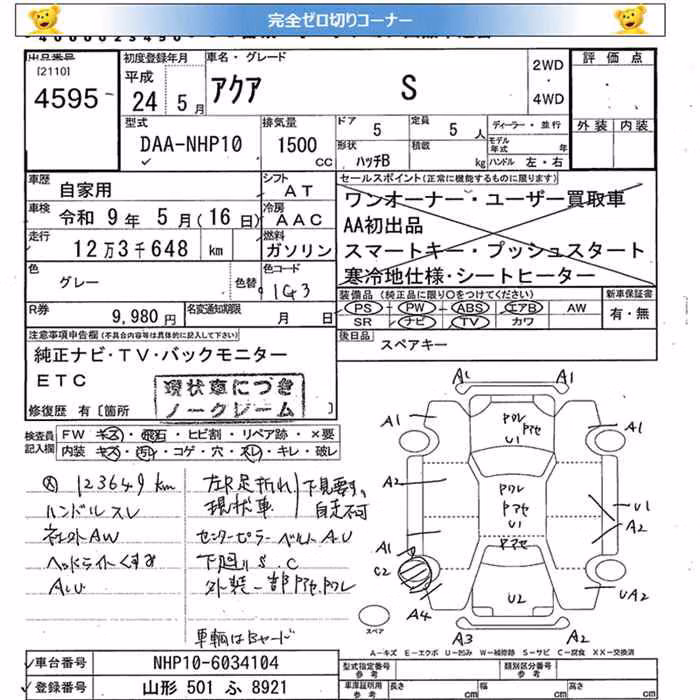 完全ゼロ切りコーナー
出品番号
[2110]
4595
初度登録年月
平成
24 5月
車名・グレード
アクア S
2WD
・
4WD
評価点
外装 内装
型式
DAA-NHP10
排気量
1500
cc
ドア 5
定員 5人
形状 ハッチB
積載 kg
ディーラー・並行
モデル年式 年
ハンドル 左・右
車歴
自家用
シフト
AT
車検
令和 9年 5月(16日)
冷房
AAC
走行
12万3千648 km
燃料
ガソリン
色
グレー
色替
色コード
1G3
R券
9,980円
名変通知期限
月 日
セールスポイント(正常に機能するものに限ります)
ワンオーナー・ユーザー買取車
AA初出品
スマートキー・プッシュスタート
寒冷地仕様・シートヒーター
装備品 (純正品に限り○をつけてください)
PS・PW・ABS・エアB・AW
SR・ナビ・TV・カワ
新車保証書
有・無
後日品
スペアキー
注意事項申告欄(不具合内容等は具体的に記入して下さい)
純正ナビ・TV・バックモニター
ETC
現状車につき
ノークレーム
修復歴 有[箇所 ]
検査員記入欄
FW キズ・飛石・ヒビ割・リペア跡・×要
内装 キズ・汚レ・コゲ・穴・スレ・キレ・破レ
123649km
ハンドルスレ
社外AW
ヘッドライトくすみ
AU
左R足折れ
現状車
下見要す
自走不可
センターピラー ベルトAU
下廻りS.C
外装一部
車輌はBヤード
A1 A1
A1 A1
A2
U1
U1
U1
A2
A1
C2
U2
UA2
A4
A3 A2
スペア
A-キズ E-エクボ U-凹み W-補修跡 S-サビ C-腐食 XX-交換済
車台番号
NHP10-6034104
登録番号
山形 501 ふ 8921
型式指定番号
参考
類別区分番号
参考
車庫証明用
参考
長さ cm
幅 cm
高さ cm